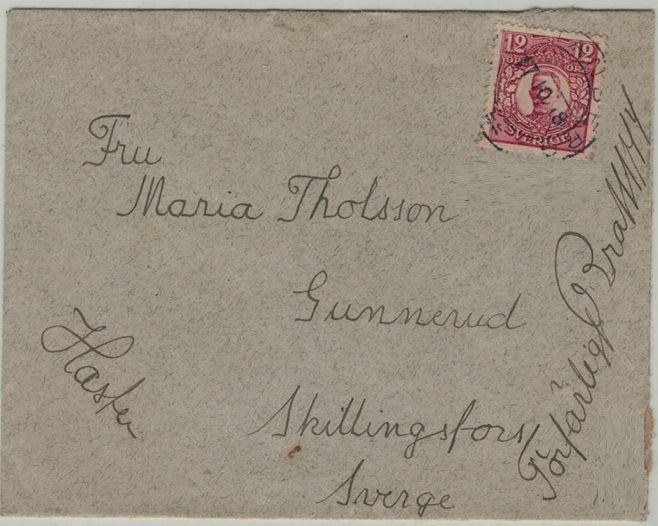 12 12
ÖRE ÖRE
SVERIGE
Fru
Maria Tholsson
Gunnerud
Skillingsfors
Sverge
Hastar
Förfärligt Bratttttt